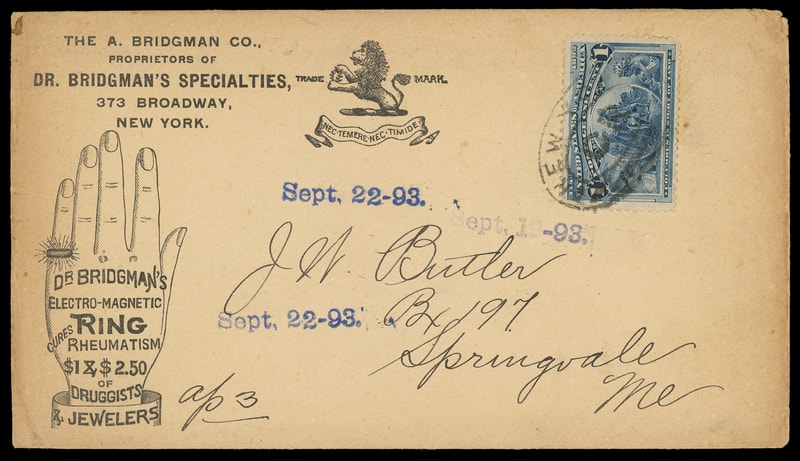 THE A. BRIDGMAN CO.,
PROPRIETORS OF
DR. BRIDGMAN'S SPECIALTIES,
373 BROADWAY,
NEW YORK.
TRADE MARK.
NEC·TEMERE·NEC·TIMIDE
Sept. 22-93.
-93.
J. W. Butler
Bx 197
Springvale
Me
Sept. 22-93.
DR BRIDGMAN'S
ELECTRO-MAGNETIC
RING
CURES RHEUMATISM
$1 & $2.50
OF
DRUGGISTS
& JEWELERS
ap 3
1
UNITED STATES OF AMERICA
1
NEW